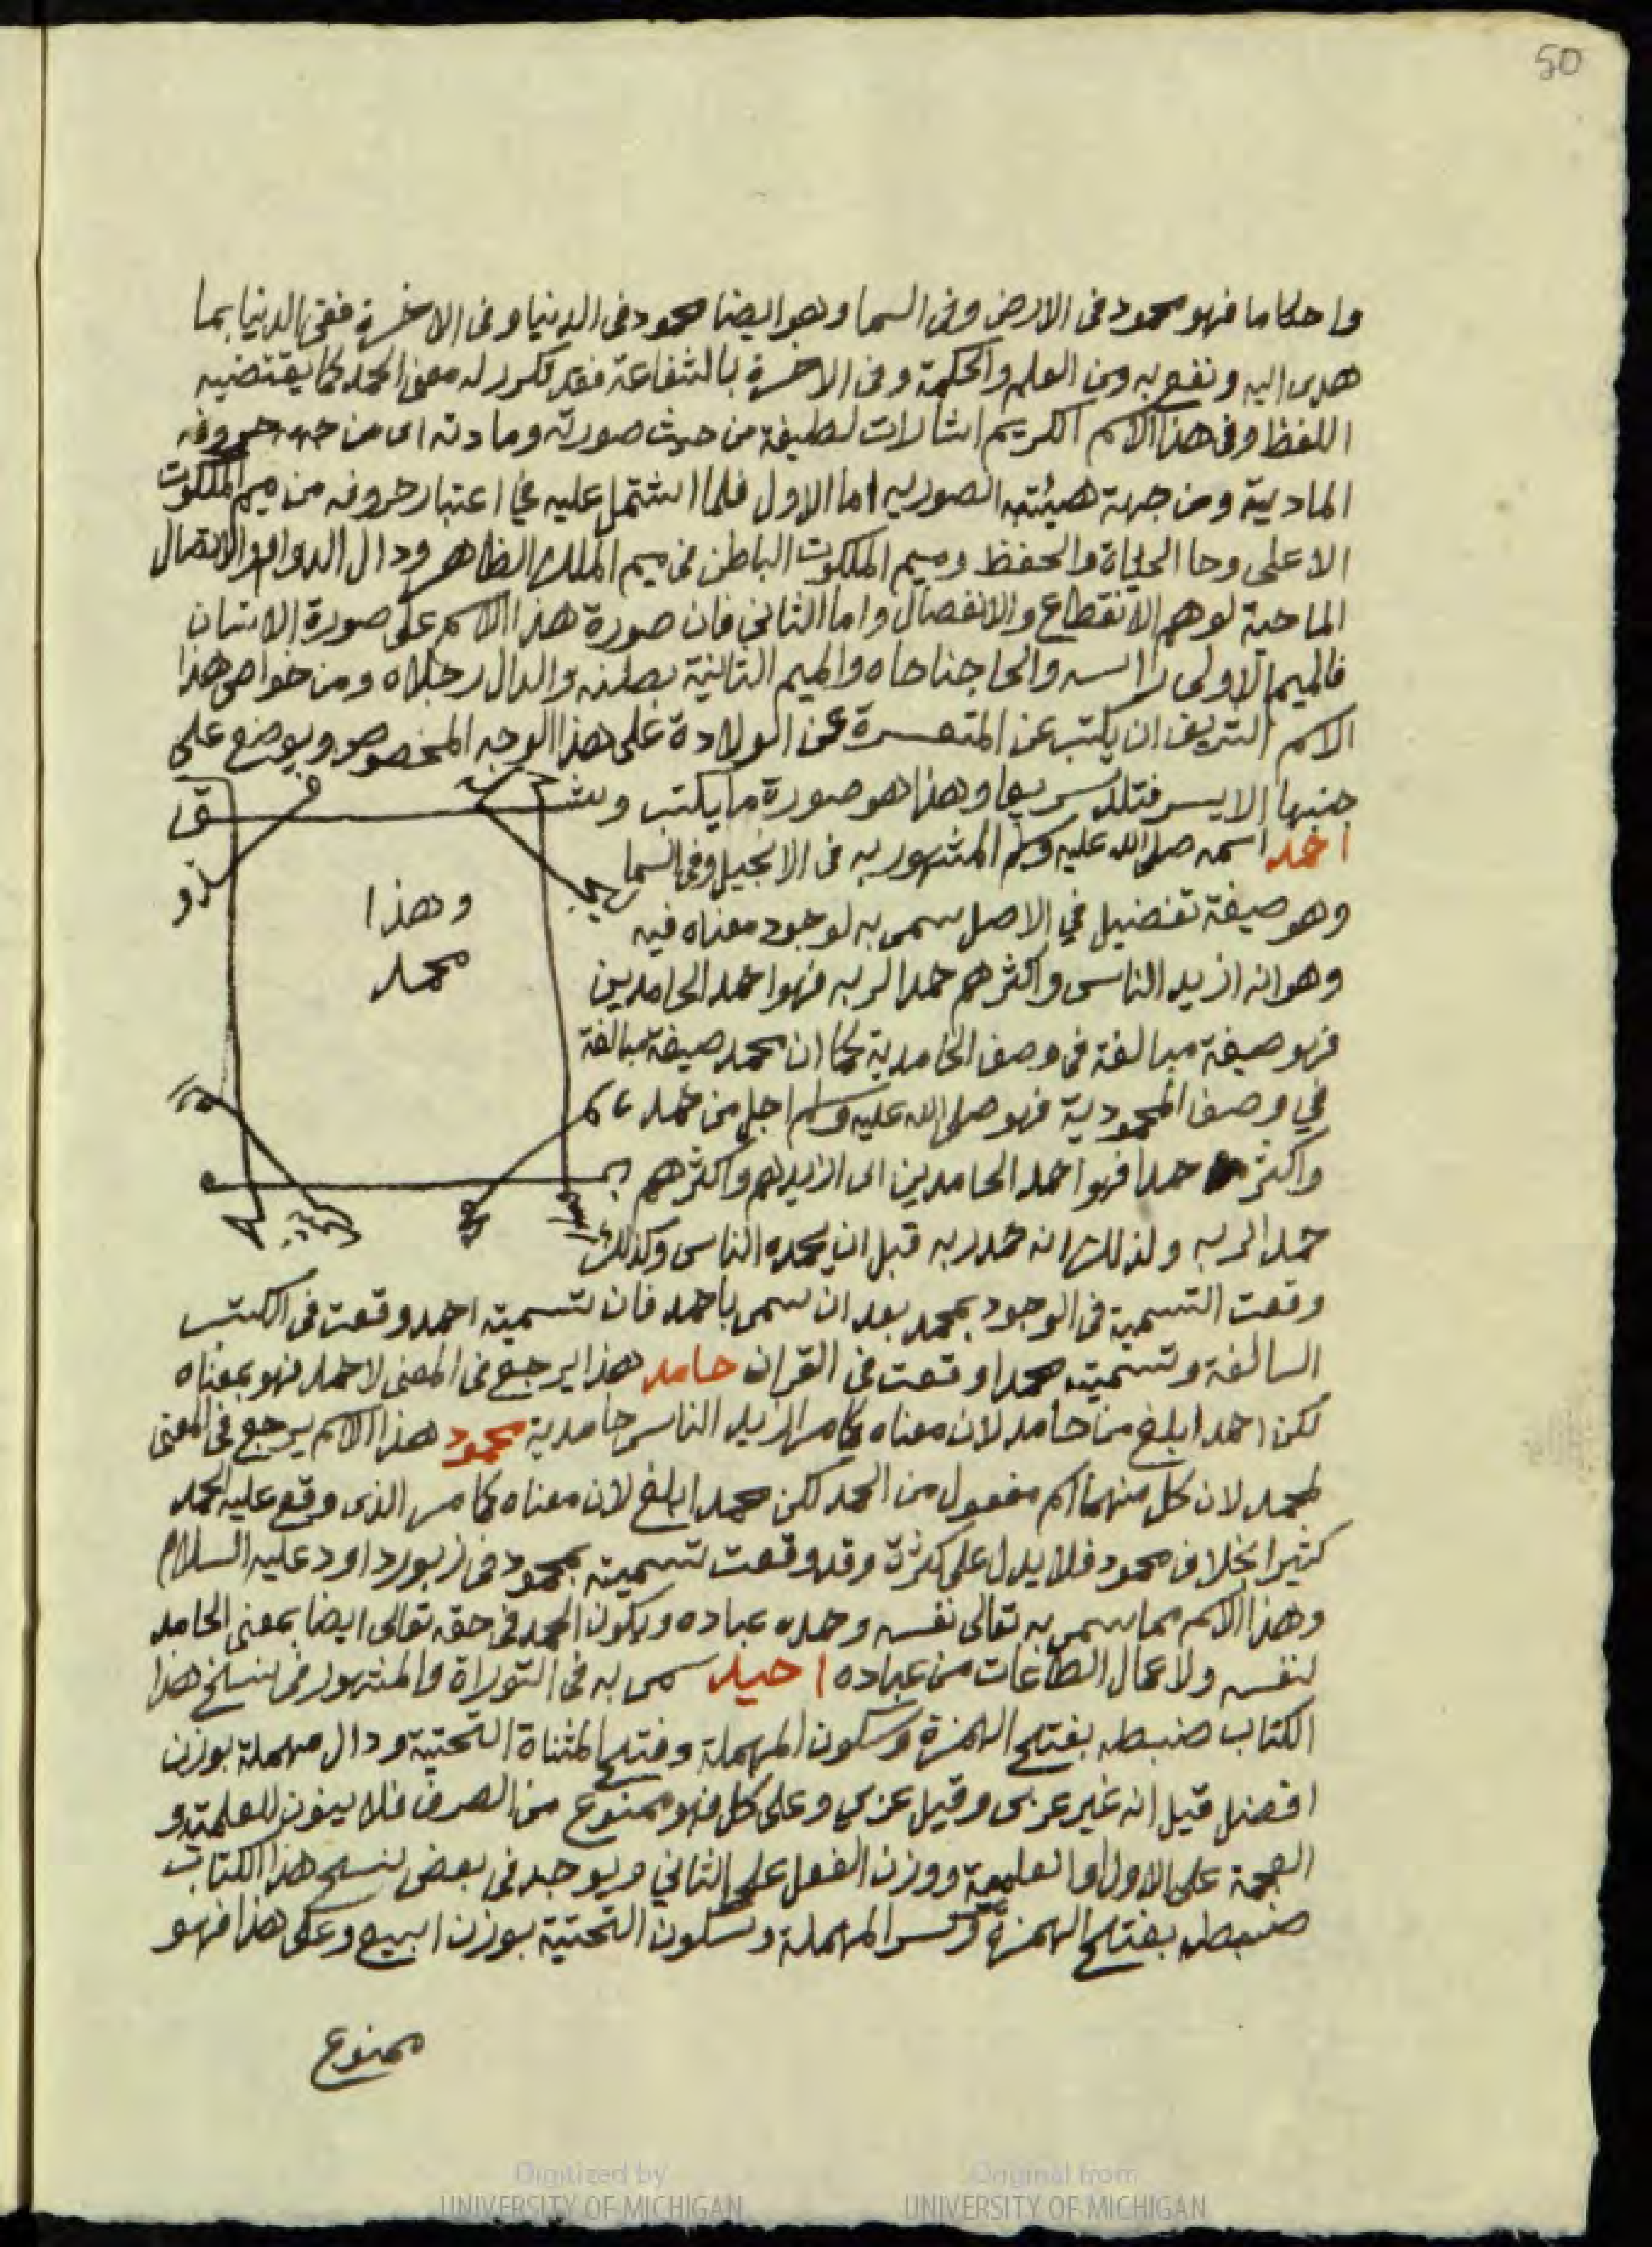 50
واحكاما فهو محمود في الارض وفي السما وهو ايضا محمود في الدنيا وفي الاخرة ففي الدنيا بما
هدى اليه ونفع به من العلم والحكمة وفي الاخرة بالشفاعة فقد تكرر له معنى الحمد كما يقتضيه
اللفظ وفي هذا الاسم الكريم اشارات لطيفة من حيث صورته ومادته اى من جهة حروفه
المادية ومن جهة هيئته الصوريه اما الاول فلما اشتمل عليه في اعتبار حروفه من ميم الملكوت
الاعلى وحا الحياة والحفظ وميم الملكوت الباطن في ميم الملك الظاهر ودال الدوام والاتصال
الماحية لوهم الانقطاع والانفصال واما الثاني فان صورة هذا الاسم على صورة الانسان
فالميم الاولى راسه والحا جناحاه والميم الثانية بطنه والدال رجلاه ومن خواص هذا
الاسم الشريف ان يكتب عن المتعسرة عن الولادة على هذا الوجه المخصوص ويوضع على
جنبها الايسر فتلد سريعا وهذا هو صورة ما يكتب
احمد اسمه صلى الله عليه وسلم المشهور به في الانجيل وفي السما
وهو صيغة تفضيل في الاصل سمى به لوجود معناه فيه
وهو انه ازيد الناس واكثرهم حمدا لربه فهو احمد الحامدين
فهو صيغة مبالغة في وصف الحامدية كما ان محمد صيغة مبالغة
في وصف المحمودية فهو صلى الله عليه وسلم اجل من حمد
واكثر حمدا فهو احمد الحامدين اى ازيدهم واكثرهم
حمدا لربه ولذلك انه حمد ربه قبل ان يحمده الناس وكذلك
وهذا
محمد
وقعت التسمية في الوجود بمحمد بعد ان سمى باحمد فان تسميته احمد وقعت في الكتب
السالفة وتسميته محمدا وقعت في القران حامد هذا يرجع في المعنى لاحمد فهو بمعناه
لكن احمد ابلغ من حامد لان معناه كما مر ازيد الناس حامدية محمود هذا الاسم يرجع في المعنى
لمحمد لان كل منهما اسم مفعول من الحمد لكن محمد ابلغ لان معناه كما مر الذى وقع عليه الحمد
كثيرا بخلاف محمود فلا يدل على كثرة وقد وقعت تسميته بمحمود في زبور داود عليه السلام
وهذا الاسم مما سمى به تعالى نفسه وحمده عباده ويكون الحمد في حقه تعالى ايضا بمعنى الحامد
لنفسه ولاعمال الطاعات من عباده احيد سمى به في التوراة والمشهور في نسخ هذا
الكتاب ضبطه بفتح الهمزة وسكون المهملة وفتح المثناة التحتية ودال مهملة بوزن
افضل قيل انه غير عربى وقيل عربي وعلى كل فهو ممنوع من الصرف فلا ينون للعلمية و
العجمة على الاول او العلمية ووزن الفعل على الثاني ويوجد في بعض نسخ هذا الكتاب
ضبطه بفتح الهمزة وكسر المهملة وسكون التحتية بوزن ابيع وعلى هذا فهو
ممنوع
Digitized by
UNIVERSITY OF MICHIGAN
Original from
UNIVERSITY OF MICHIGAN